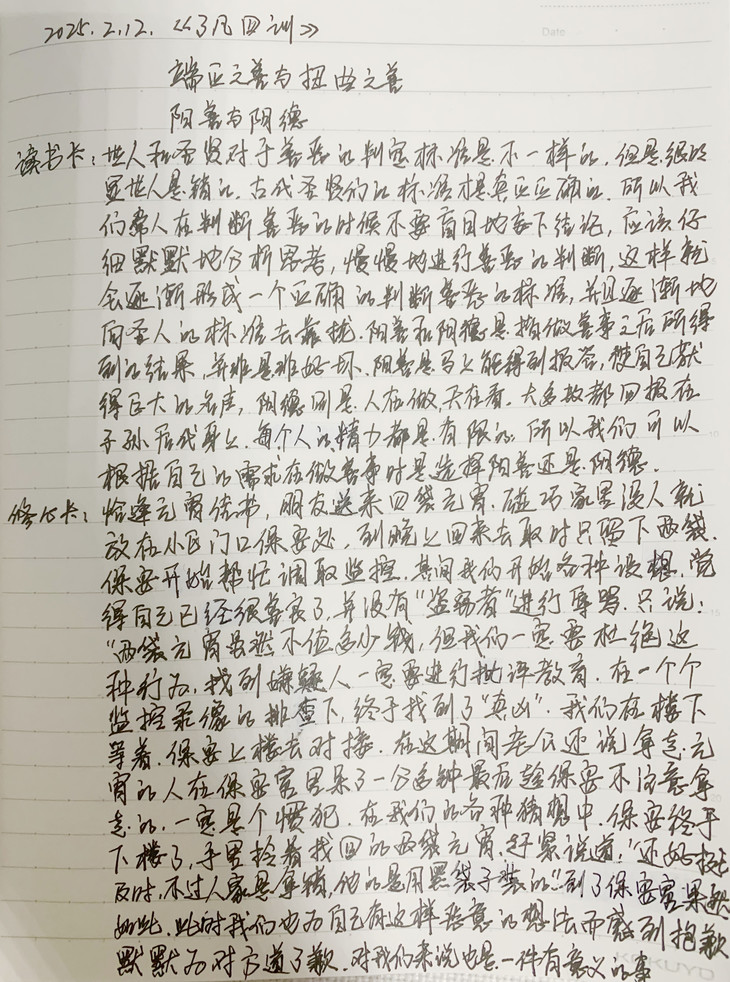 Date
2025.2.12.《了凡四训》
端正之善与扭曲之善
阳善与阴德
读书卡：世人和圣贤对于善恶的判定标准是不一样的，但是很明
显世人是错的，古代圣贤们的标准才是真正正确的。所以我
们常人在判断善恶的时候不要盲目地去下结论，应该仔
细默默地分析思考，慢慢地进行善恶的判断，这样就
会逐渐形成一个正确的判断善恶的标准，并且逐渐地
向圣人的标准去靠拢。阳善和阴德是指做善事之后所得
到的结果，并非是非好坏。阳善是马上能得到报答，使自己获
得巨大的名声，阴德则是人在做，天在看。大多数都回报在
子孙后代身上。每个人的精力都是有限的，所以我们可以
根据自己的需求在做善事时是选择阳善还是阴德。
修心卡：恰逢元宵佳节，朋友送来四袋元宵。碰巧家里没人就
放在小区门口保安处，到晚上回来去取时只留下两袋。
保安开始帮忙调取监控，其间我们开始各种设想，觉
得自己已经很善良了，并没有“盗窃者”进行辱骂。只说：
“两袋元宵虽然不值多少钱，但我们一定要杜绝这
种行为，找到嫌疑人一定要进行批评教育。在一个个
监控录像的排查下，终于找到了“真凶”。我们在楼下
等着，保安上楼去对接。在这期间老公还说拿走元
宵的人在保安室里呆了一分多钟最后趁保安不注意拿
走的，一定是个惯犯。在我们的各种猜想中，保安终于
下楼了，手里拎着找回的两袋元宵，赶紧说道：“还好找
及时，不过人家是拿错，他的是用黑袋子装的”！到了保安室果然
如此，此时我们也为自己有这样恶意的想法而感到抱歉
默默为对方道了歉。对我们来说也是一件有意义的事